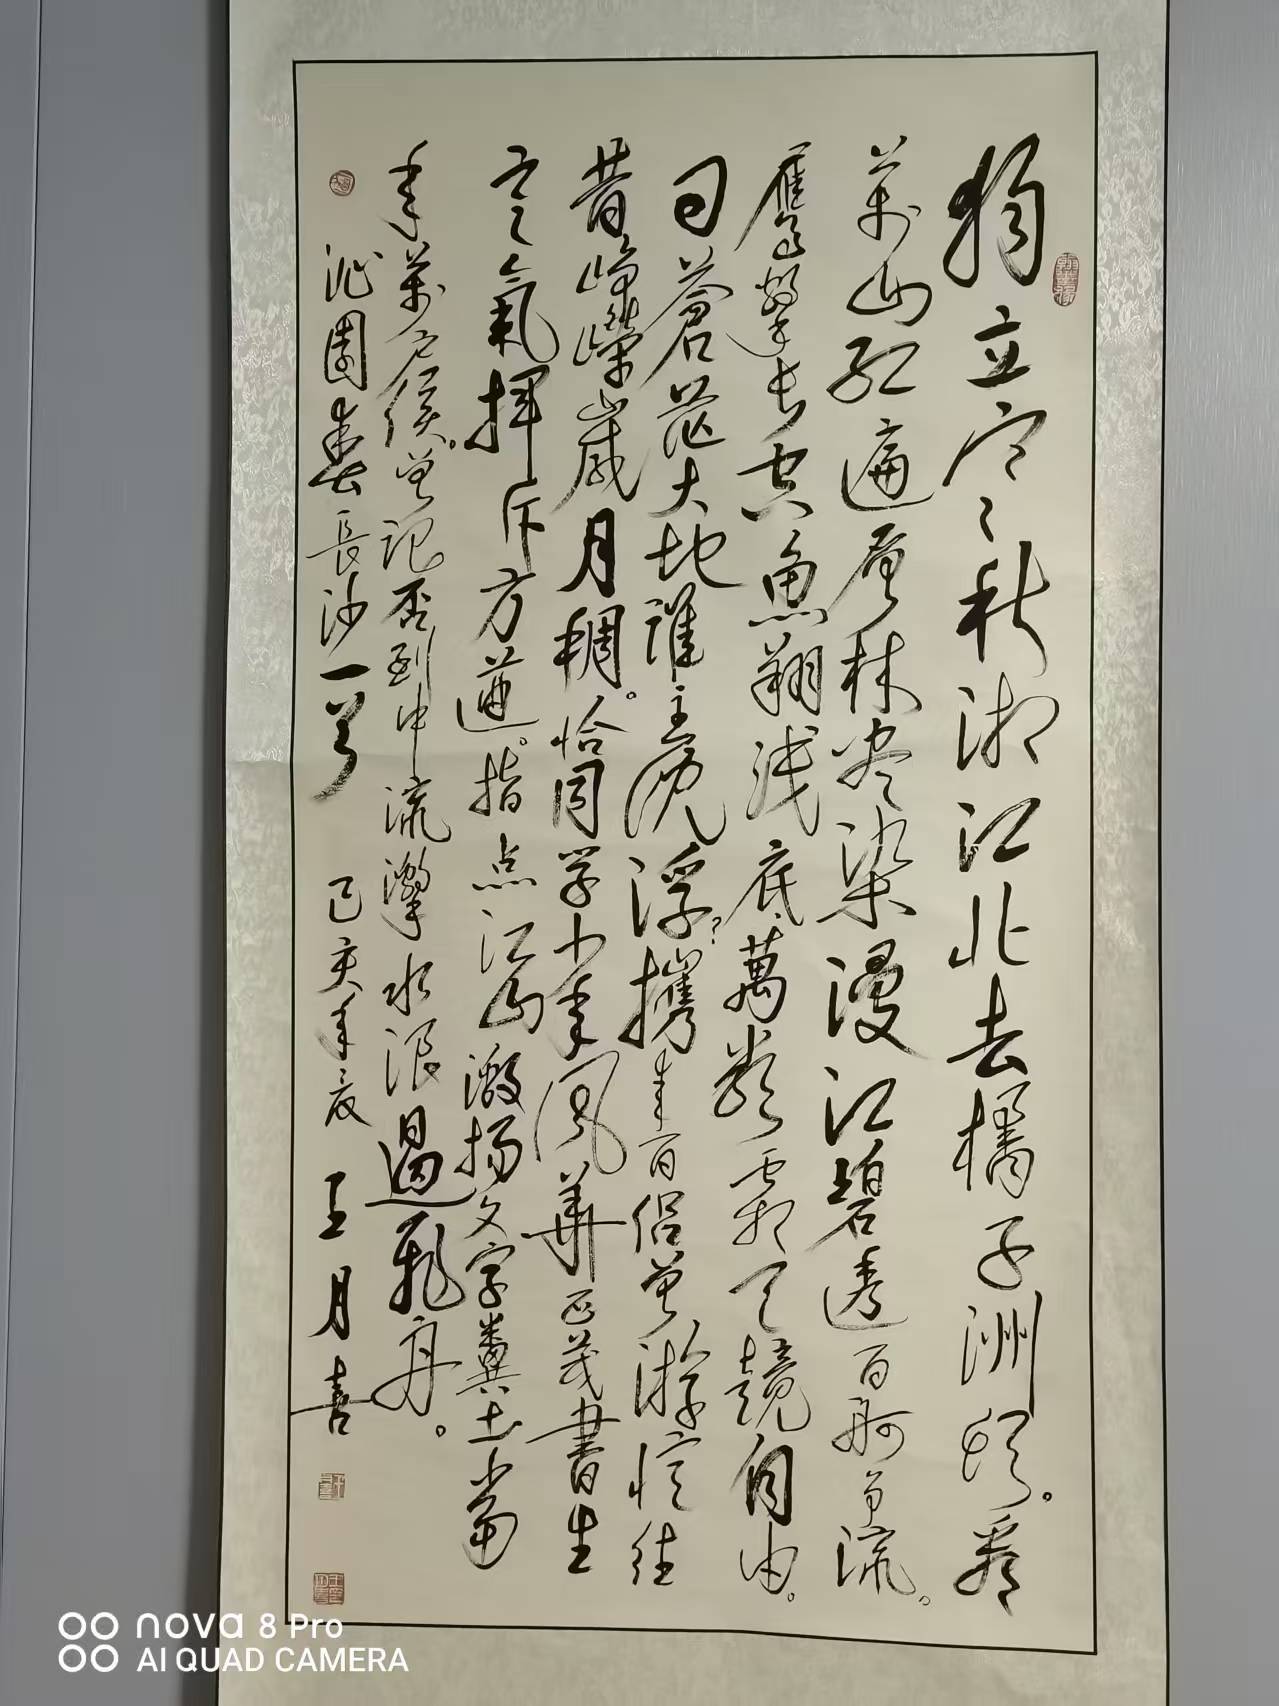 独立寒秋湘江北去橘子洲頭。看
萬山红遍层林尽染漫江碧透百舸争流。
鷹擊长空魚翔浅底、萬类霜天競自由。
问蒼茫大地誰主沉浮?攜来百侣曾游憶往
昔崢嶸歲月稠。恰同学少年风華正茂書生
意氣揮斥方遒。指点江山激扬文字糞土当
年萬户侯。曾记否到中流擊水浪遏飛舟。
沁園春長沙一首 己亥年夏 王月喜
nova 8 Pro
AI QUAD CAMERA